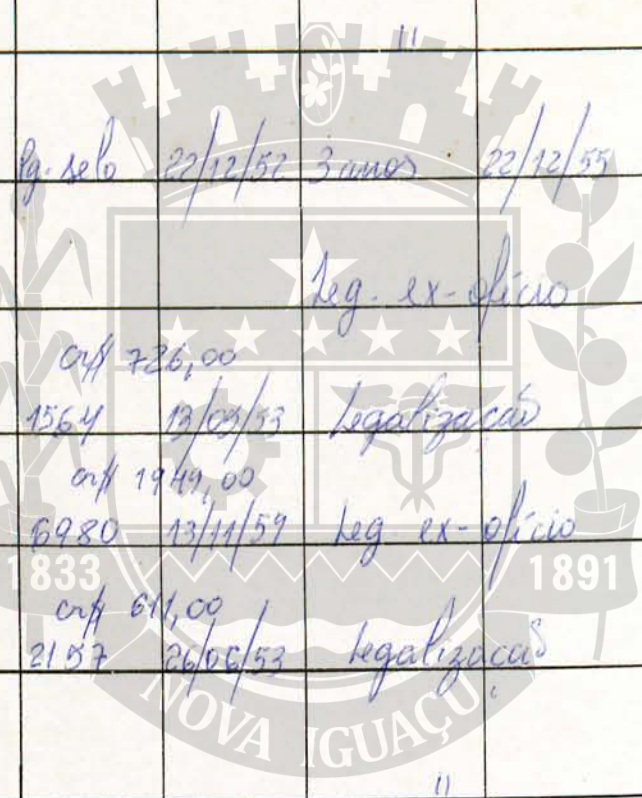 "
Pg. selo 22/12/52 3 anos 22/12/55
Leg. ex-ofício
cr$ 726,00
1564 13/03/53 Legalização
cr$ 1949,00
6980 13/11/59 Leg. ex-ofício
1833 1891
cr$ 611,00
2157 26/06/53 Legalização
NOVA IGUAÇU
"